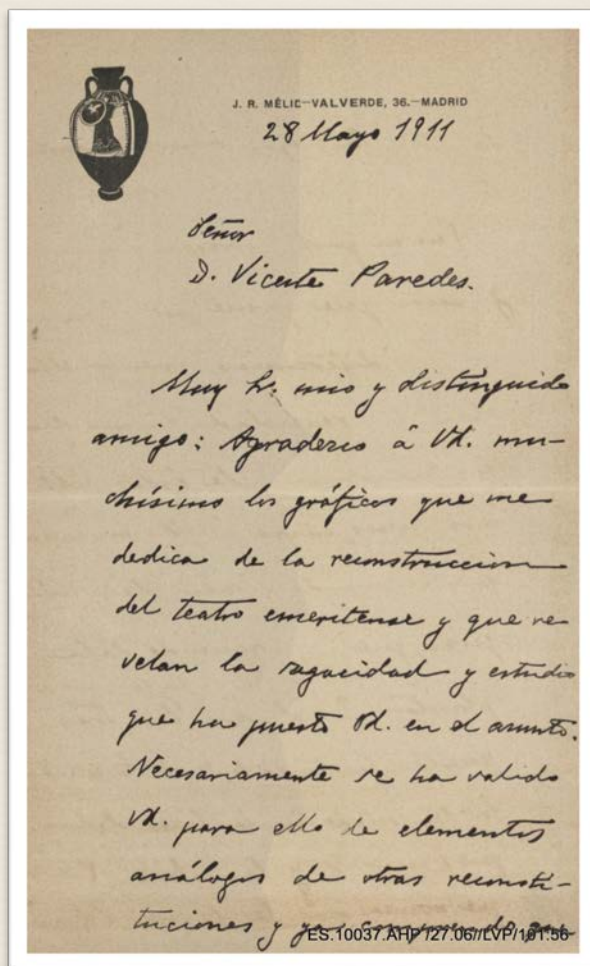 J. R. MÉLID–VALVERDE, 36.–MADRID
28 Mayo 1911
Señor
D. Vicente Paredes.
Muy Sr. mio y distinguido
amigo: Agradezco á Vd. mu-
chísimo los gráficos que me
dedica de la reconstruccion
del teatro emeritense y que re
velan la sagacidad y estudio
que ha puesto Vd. en el asunto.
Necesariamente se ha valido
Vd. para ello de elementos
análogos de otras reconsti-
tuciones y ya
ES.10037.AHP/27.06//LVP/161:56